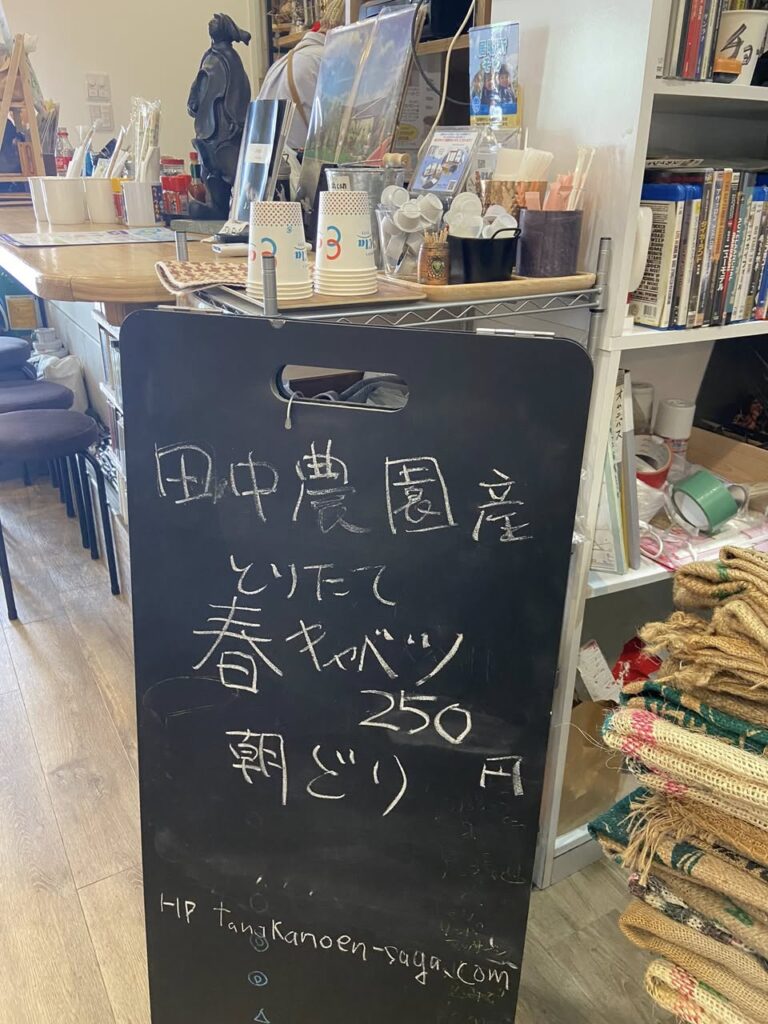 田中農園産
とりたて
春キャベツ
250
朝どり 円
HP tanakanoen-saga.com